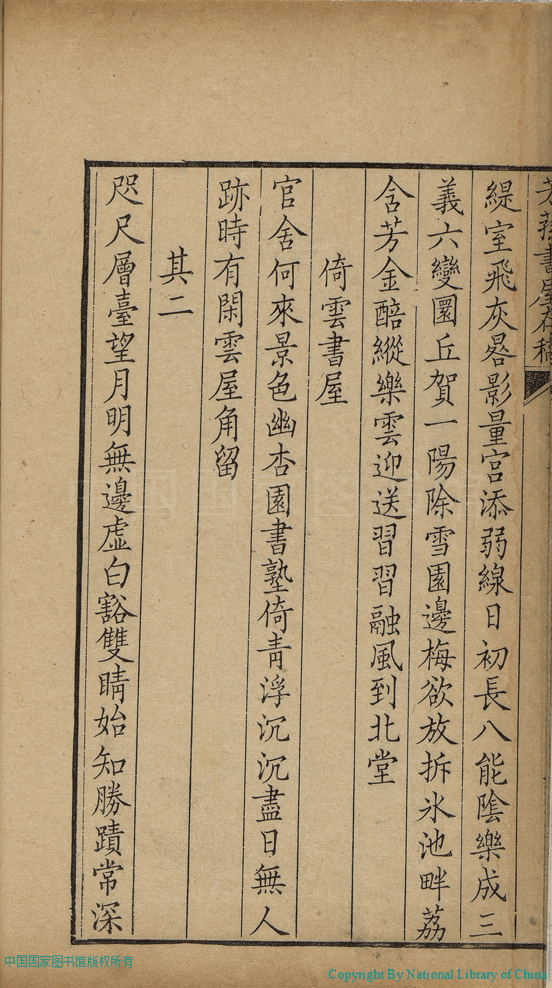 緹室飛灰晷影量宮添弱線日初長八能陰樂成三
義六變圜丘賀一陽除雪園邊梅欲放拆氷池畔荔
含芳金醅縱樂雲迎送習習融風到北堂
倚雲書屋
官舍何來景色幽杏園書塾倚青浮沉沉盡日無人
跡時有閑雲屋角留
其二
咫尺層臺望月明無邊虛白豁雙睛始知勝蹟常深
中国国家图书馆版权所有
Copyright By National Library of China